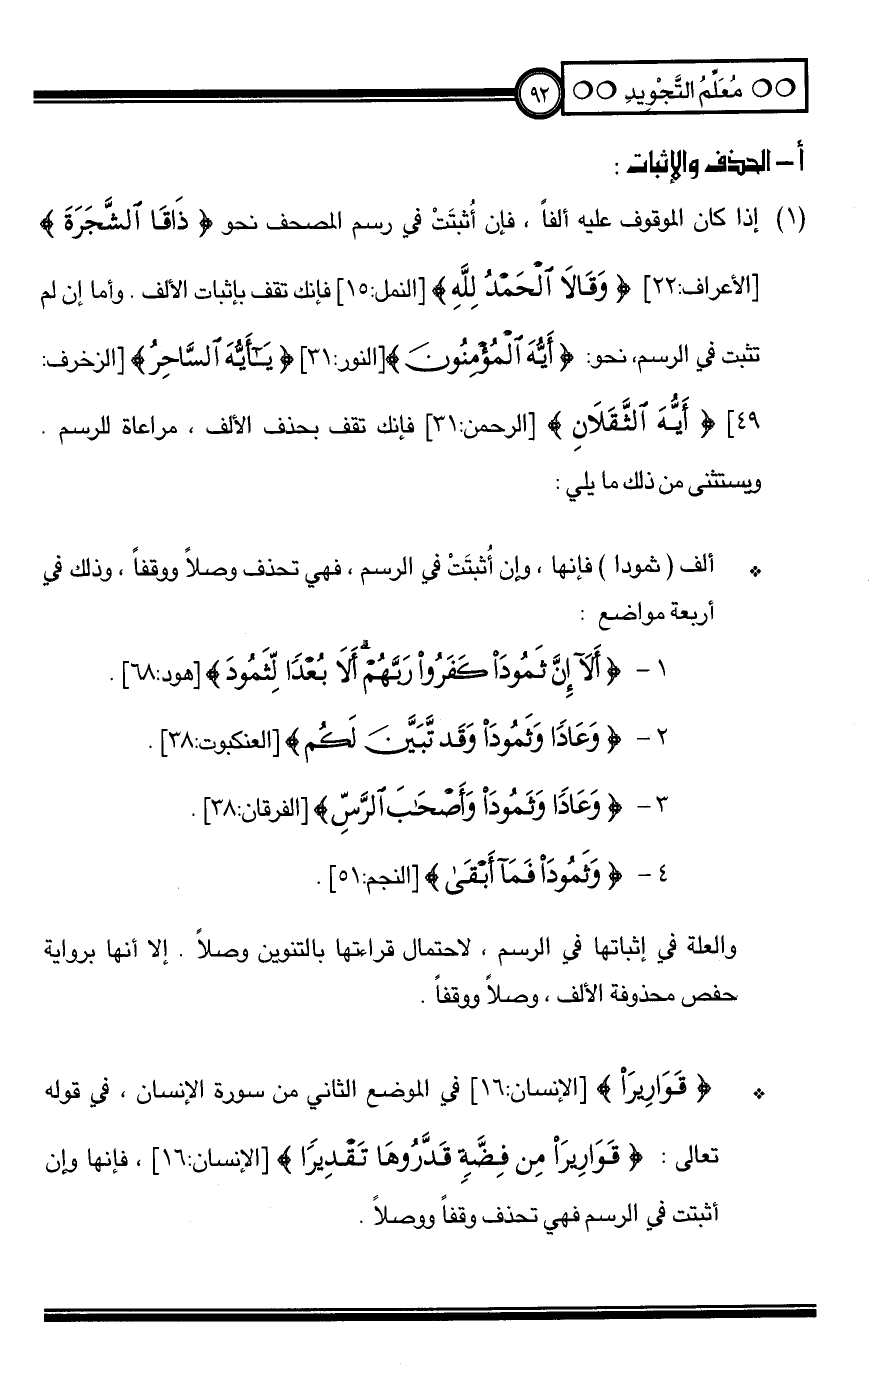 مُعَلِّمُ التَّجْوِيدِ
٩٢
أ – الحذف والإثبات :
(١) إذا كان الموقوف عليه ألفاً ، فإن أُثبتَتْ في رسم المصحف نحو ﴿ ذَاقَا ٱلشَّجَرَةَ ﴾
[الأعراف:٢٢] ﴿ وَقَالَا ٱلْحَمْدُ لِلَّهِ ﴾ [النمل:١٥] فإنك تقف بإثبات الألف . وأما إن لم
تثبت في الرسم، نحو: ﴿ أَيُّهَ ٱلْمُؤْمِنُونَ ﴾[النور:٣١] ﴿ يَـٰٓأَيُّهَ ٱلسَّاحِرُ ﴾ [الزخرف:
٤٩] ﴿ أَيُّهَ ٱلثَّقَلَانِ ﴾ [الرحمن:٣١] فإنك تقف بحذف الألف ، مراعاة للرسم .
ويستثنى من ذلك ما يلي :
❖ ألف ( ثمودا ) فإنها ، وإن أُثبتَتْ في الرسم ، فهي تحذف وصلاً ووقفاً ، وذلك في
أربعة مواضع :
١ – ﴿ أَلَآ إِنَّ ثَمُودَا۟ كَفَرُوا۟ رَبَّهُمْ ۗ أَلَا بُعْدًا لِّثَمُودَ ﴾ [هود:٦٨] .
٢ – ﴿ وَعَادًا وَثَمُودَا۟ وَقَد تَّبَيَّنَ لَكُم ﴾ [العنكبوت:٣٨] .
٣ – ﴿ وَعَادًا وَثَمُودَا۟ وَأَصْحَـٰبَ ٱلرَّسِّ ﴾ [الفرقان:٣٨] .
٤ – ﴿ وَثَمُودَا۟ فَمَآ أَبْقَىٰ ﴾ [النجم:٥١] .
والعلة في إثباتها في الرسم ، لاحتمال قراءتها بالتنوين وصلاً . إلا أنها برواية
حفص محذوفة الألف ، وصلاً ووقفاً .
❖ ﴿ قَوَارِيرَا۟ ﴾ [الإنسان:١٦] في الموضع الثاني من سورة الإنسان ، في قوله
تعالى : ﴿ قَوَارِيرَا۟ مِن فِضَّةٍ قَدَّرُوهَا تَقْدِيرًا ﴾ [الإنسان:١٦] ، فإنها وإن
أثبتت في الرسم فهي تحذف وقفاً ووصلاً .